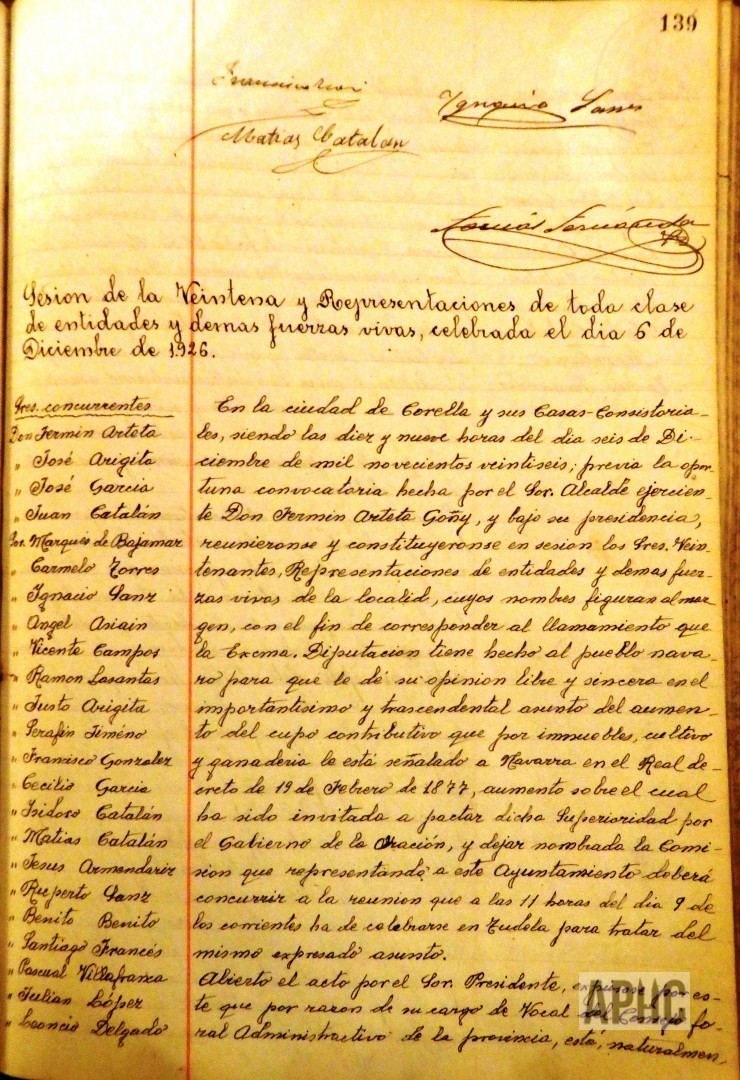 139
Ignacio Sanz
Matias Catalan
Tomás Fernández
Sesion de la Veintena y Representaciones de toda clase
de entidades y demas fuerzas vivas, celebrada el dia 6 de
Diciembre de 1926.
Sres. concurrentes
Don Fermin Arteta
" José Arigita
" José Garcia
" Juan Catalán
Sor. Marqués de Bajamar
" Carmelo Torres
" Ignacio Sanz
" Angel Asiain
" Vicente Campos
" Ramon Lasantas
" Justo Arigita
" Serafin Jiméno
" Francisco Gonzalez
" Cecilio Garcia
" Isidoro Catalán
" Matias Catalán
" Jesus Armendariz
" Ruperto Sanz
" Benito Benito
" Santiago Francés
" Pascual Villafranca
" Julian López
" Leoncio Delgado
En la ciudad de Corella y sus Casas-Consistoria-
les, siendo las diez y nueve horas del dia seis de Di-
ciembre de mil novecientos veintiseis; previa la opor-
tuna convocatoria hecha por el Sor. Alcalde ejercien-
te Don Fermin Arteta Goñy, y bajo su presidencia,
reunieronse y constituyeronse en sesion los Sres. Vein-
tenantes, Representaciones de entidades y demas fuer-
zas vivas de la localid, cuyos nombres figuran al mar
gen, con el fin de corresponder al llamamiento que
la Excma. Diputacion tiene hecho al pueblo nava-
ro para que le dé su opinion libre y sincera en el
importantisimo y trascendental asunto del aumen-
to del cupo contributivo que por inmuebles, cultivo
y ganaderia le está señalado a Navarra en el Real de-
creto de 19 de Febrero de 1877, aumento sobre el cual
ha sido invitada a pactar dicha Superioridad por
el Gobierno de la Nación, y dejar nombrada la Comi-
sion que representando a este Ayuntamiento deberá
concurrir a la reunion que a las 11 horas del dia 9 de
los corrientes ha de celebrarse en Tudela para tratar del
mismo expresado asunto.
Abierto el acto por el Sor. Presidente, expúsose por es-
te que por razon de su cargo de Vocal del Consejo fo-
ral Administractivo de la provincia, está, naturalmen-
APHC